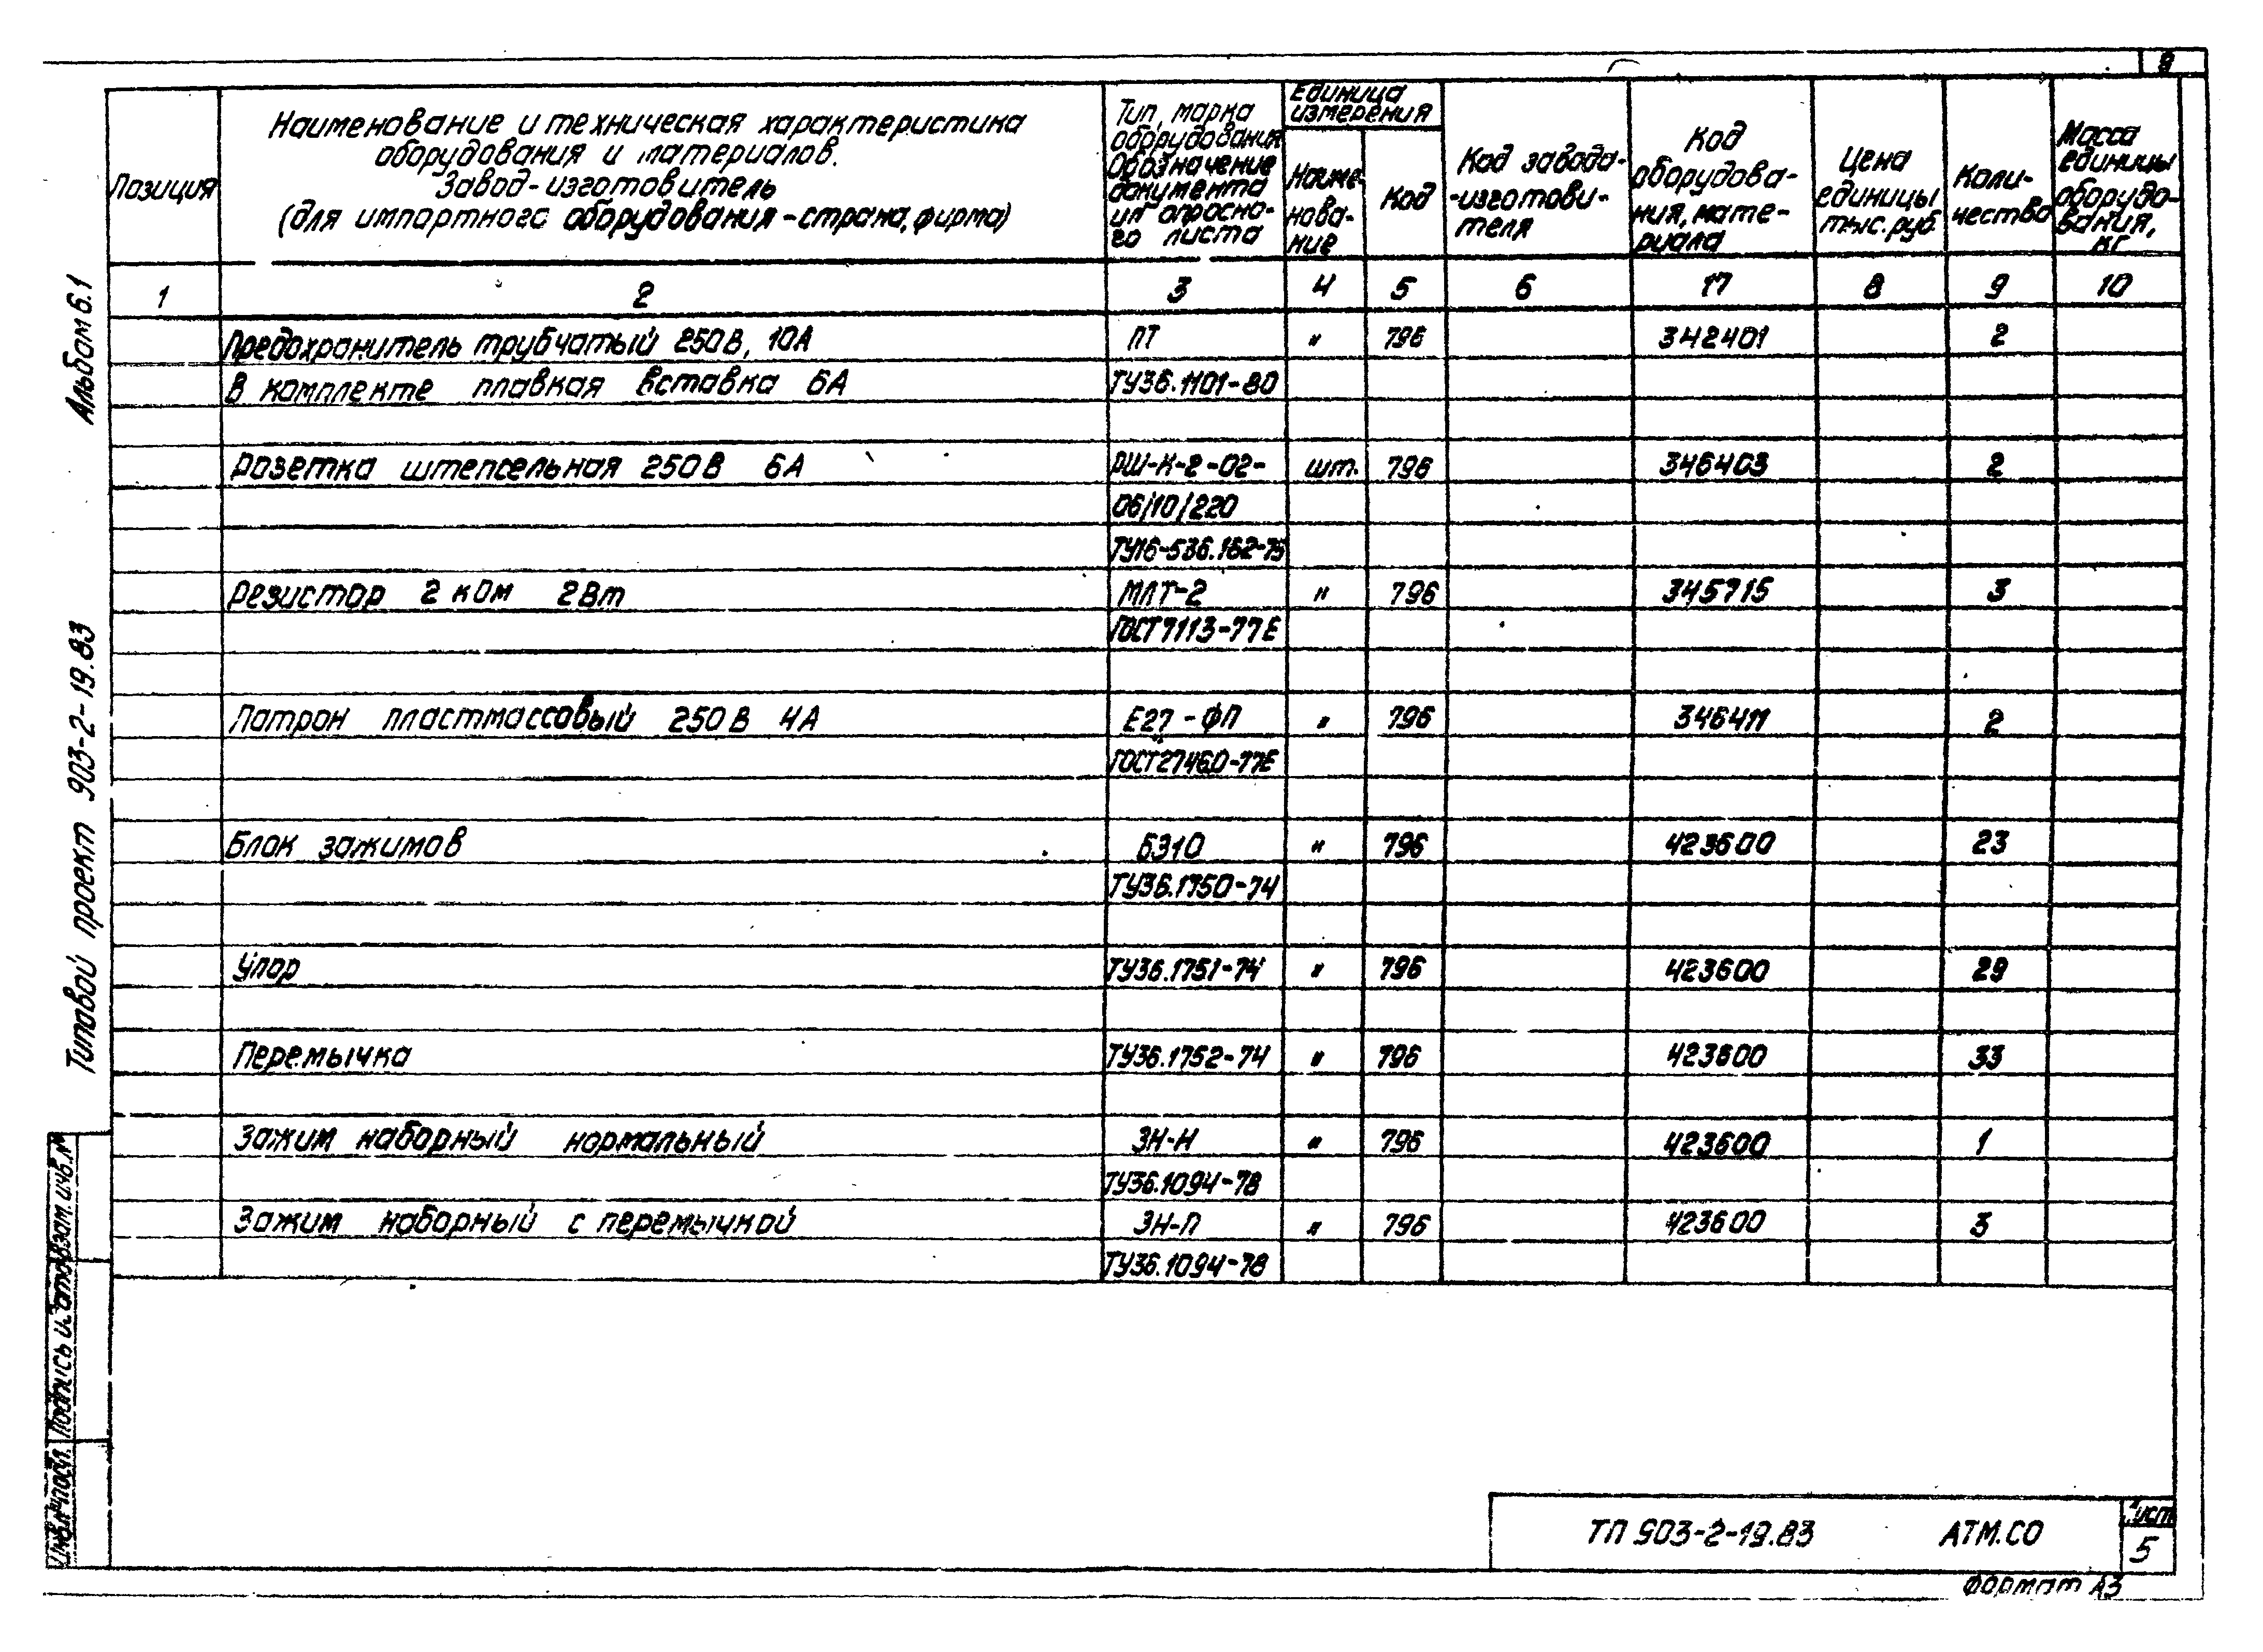 9
Позиция
Наименование и техническая характеристика
оборудования и материалов.
Завод-изготовитель
(для импортного оборудования - страна, фирма)
Тип, марка
оборудования
Обозначение
документа
и л опросно-
го листа
Единица
измерения
Наиме-
нова-
ние
Код
Код завода-
-изготови-
теля
Код
оборудова-
ния, мате-
риала
Цена
единицы
тыс. руб.
Коли-
чество
Масса
единицы
оборудо-
вания,
кг
1 2 3 4 5 6 17 8 9 10
Предохранитель трубчатый 250В, 10А ПТ " 796 342401 2
В комплекте плавкая вставка 6А ТУ36.1101-80
Розетка штепсельная 250В 6А РШ-К-2-02- шт. 796 346403 2
06/10/220
ТУ16-536.162-75
Резистор 2 кОм 2Вт МЛТ-2 " 796 345715 3
ГОСТ 7113-77Е
Патрон пластмассовый 250В 4А Е27-ФП " 796 346411 2
ГОСТ2746.0-77Е
Блок зажимов БЗ10 " 796 423600 23
ТУ36.1750-74
Упор ТУ36.1751-74 " 796 423600 29
Перемычка ТУ36.1752-74 " 796 423600 33
Зажим наборный нормальный ЗН-Н " 796 423600 1
ТУ36.1094-78
Зажим наборный с перемычкой ЗН-П " 796 423600 3
ТУ36.1094-78
Альбом 6.1
Типовой проект 903-2-19.83
Взам. инв. №
Подпись и дата
Инв. № подл.
ТП 903-2-19.83 АТМ.СО
Лист
5
Формат А3